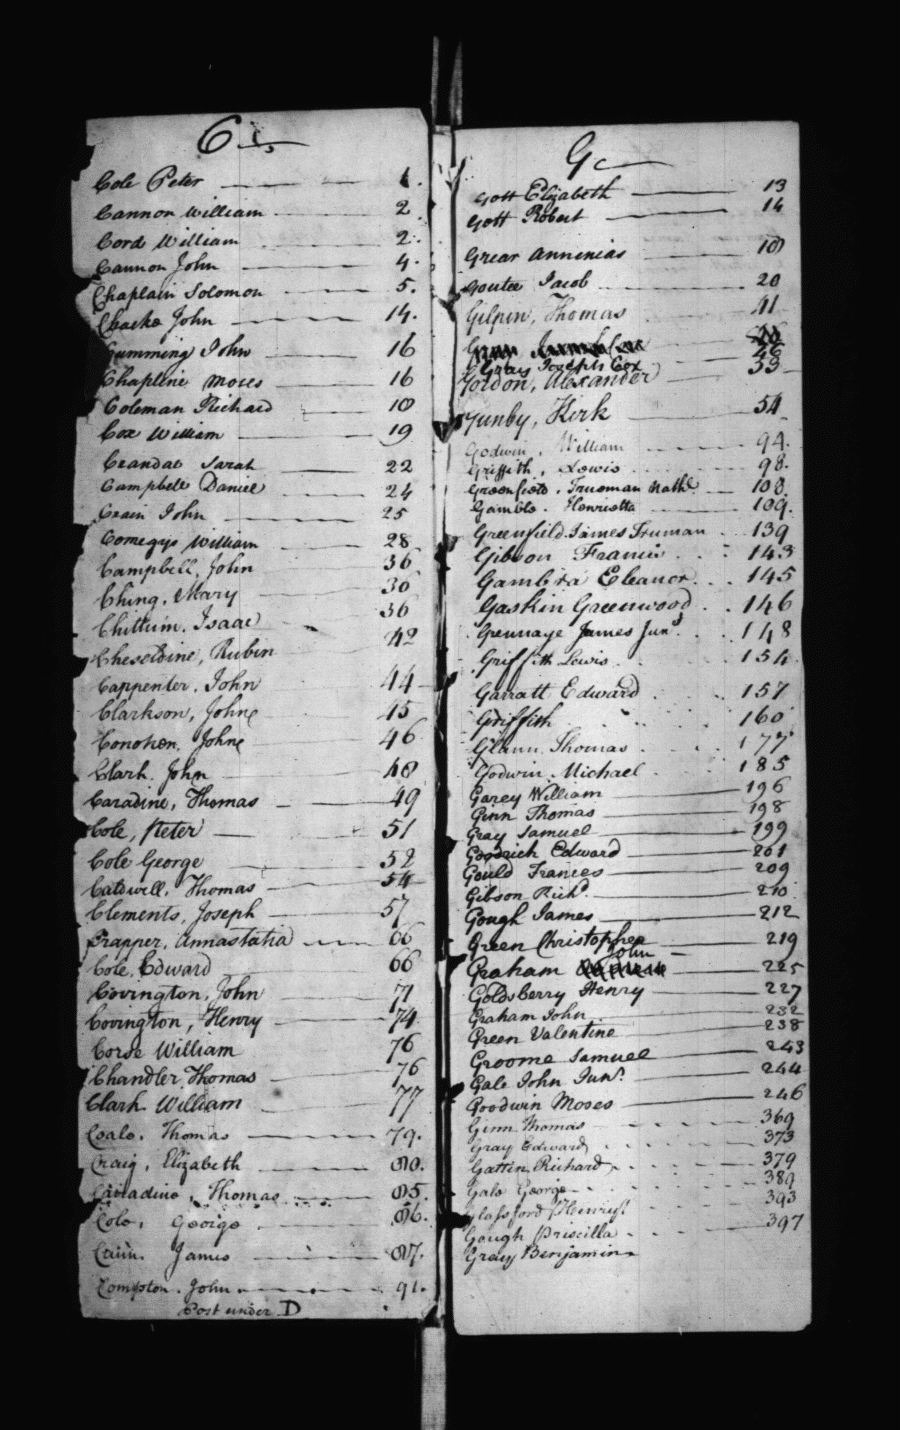 C
Cole Peter 1.
Cannon William 2
Cord William 2.
Cannon John 4.
Chaplain Solomon 5.
John 14.
Cumming John 16
Chapline Moses 16
Coleman Richard 18
Cox William 19
Crandal Sarah 22
Campbell Daniel 24
Crain John 25
Comegys William 28
Campbell, John 36
Ching, Mary 36
Chittum, Isaac 36
Cheseldine, Rubin 42
Cappenter, John 44
Clarkson, John 45
Conohen, John 46
Clark. John 48
Caradine, Thomas 49
Cole, Peter 51
Cole George 52
Caldwell, Thomas 54
Clements, Joseph 57
Crapper, Annastatia 66
Cole, Edward 66
Covington, John 71
Covington, Henry 74
Corse William 76
Chandler Thomas 76
Clark William 77
Coale, Thomas 79.
Craig, Elizabeth 80.
Carradine, Thomas 85.
Cole, George 86.
Cain James 87.
Compton. John 91.
Post under D
G
Gott Elizabeth 13
Gott Robert 14
Grear Anninias 18
Goutee Jacob 20
Gilpin, Thomas 41
Gray Joseph Cox 46
Gordon, Alexander 53
Gunby, Kirk 54
Godwin, William 94.
Griffith, Lewis 98.
Greenfield, Trueman Nathl 108
Gamble. Henrietta 109.
Greenfield James Truman 139
Gibson Francis 143
Gambra Eleanor 145
Gaskin Greenwood 146
Grennage James Junr 148
Griffith Lewis 154
Garratt Edward 157
Griffith 160
Glann Thomas 177
Godwin Michael 185
Garey William 196
Ginn Thomas 198
Gray Samuel 199
Goodrich Edward 201
Gould Frances 209
Gibson Richd 210
Gough James 212
Green Christopher 219
John
Graham 225
Goldsberry Henry 227
Graham John 232
Green Valentine 238
Groome Samuel 243
Gale John Junr 244
Goodwin Moses 246
Ginn Thomas 369
Gray Edward 373
Gattin Richard 379
Gale George 389
Glassford Henry 393
Gough Priscilla 397
Gray Benjamin